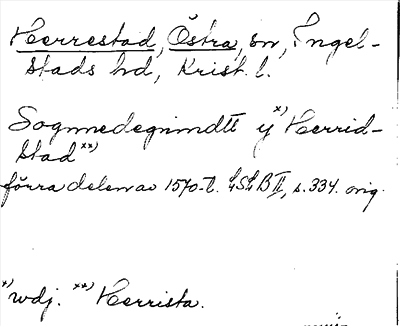 Herrestad, Östra, sn, Ingel-
stads hd, Krist. l.
Sognnedegnindtt y *) Herrid-
stad **)
förra delen av 1570-t. LSLB II, s. 334. orig.
*) udj. **) Herrista.